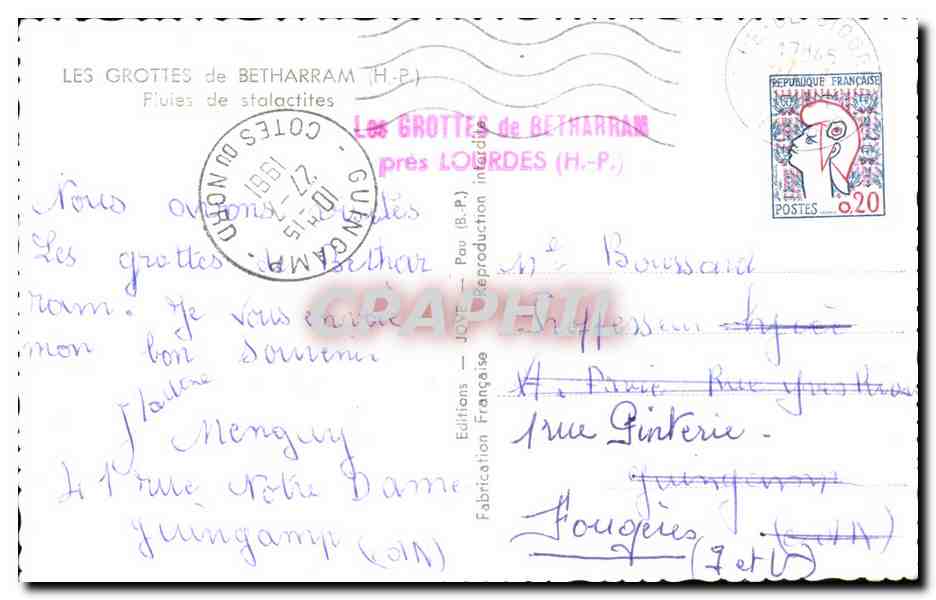 LES GROTTES de BETHARRAM (H.-P.)
Pluies de stalactites
Les GROTTES de BETHARRAM
près LOURDES (H.-P.)
GUINGAMP
COTES DU NORD
10H-15
27-7
1961
17H45
REPUBLIQUE FRANÇAISE
POSTES
0,20
Nous avions visités
Les grottes de Béthar
ram. Je vous envoie
mon bon souvenir
Menguy
41 rue Notre Dame
Guingamp (cdN)
Editions — JOVE — Pau (B.-P.)
Fabrication Française Reproduction interdite
CRAPHIL
Mle Boussard
Proffesseur Lycée
A. Pavie Rue Yves
1 rue Pinterie -
Guingamp
(cdN)
Fougères
(I et V)